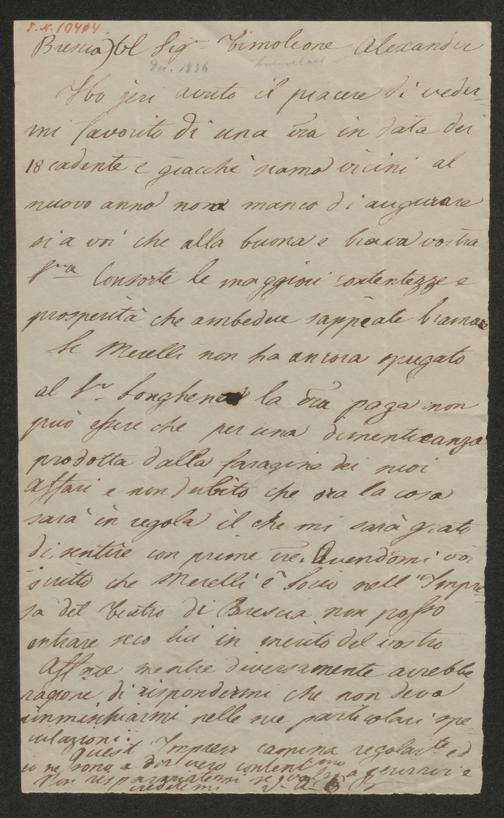 S.N. 10404
Brescia) Al Sigr Timoleone Alexander
Dec. 1836
Ho jeri avuto il piacere di veder-
mi favorito di una vra in data dei
18 cadente e giacchè siamo vicini al
nuovo anno non manco di augurare
si a voi che alla buona e brava vostra
Sra Consorte le maggiori contentezze e
prosperità che ambedue sappiate bramare
Se Merelli non ha ancora spugato
al Sr Longhena la vra paga non
può essere che per una dimenticanza
prodotta dalla faragine dei suoi
affari e non dubito che ora la cosa
sarà in regola il che mi sarà grato
di sentire con prime vre. Avendomi voi
scritto che Merelli è Socio nell'Impre-
sa del Teatro di Brescia non posso
entrare seco lui in merito del vostro
Affare mentre diversamente avrebbe
ragione di rispondermi che non devo
immischiarmi nelle sue particolari spe-
culazioni.
Quest' Impresa camina regolarte ed
io ne sono a dir vero contentmo
Non risparmiatemi se valgo a servirvi e
credetemi